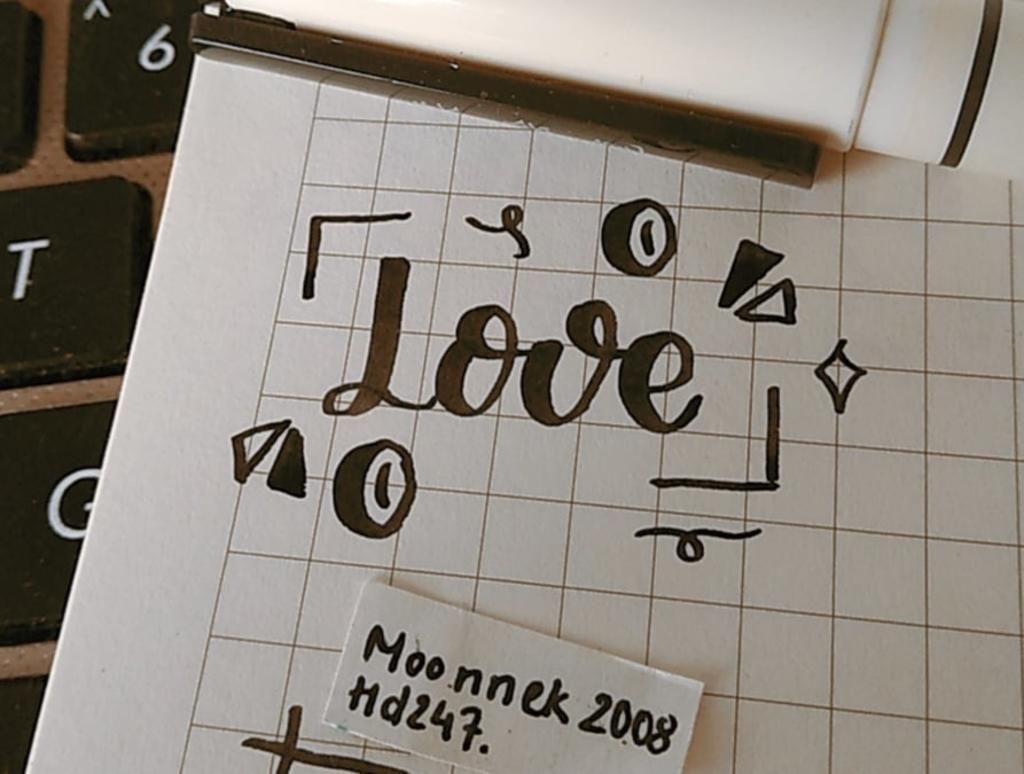 ^
6
T
G
Love
Moonnek 2008
Hd247.